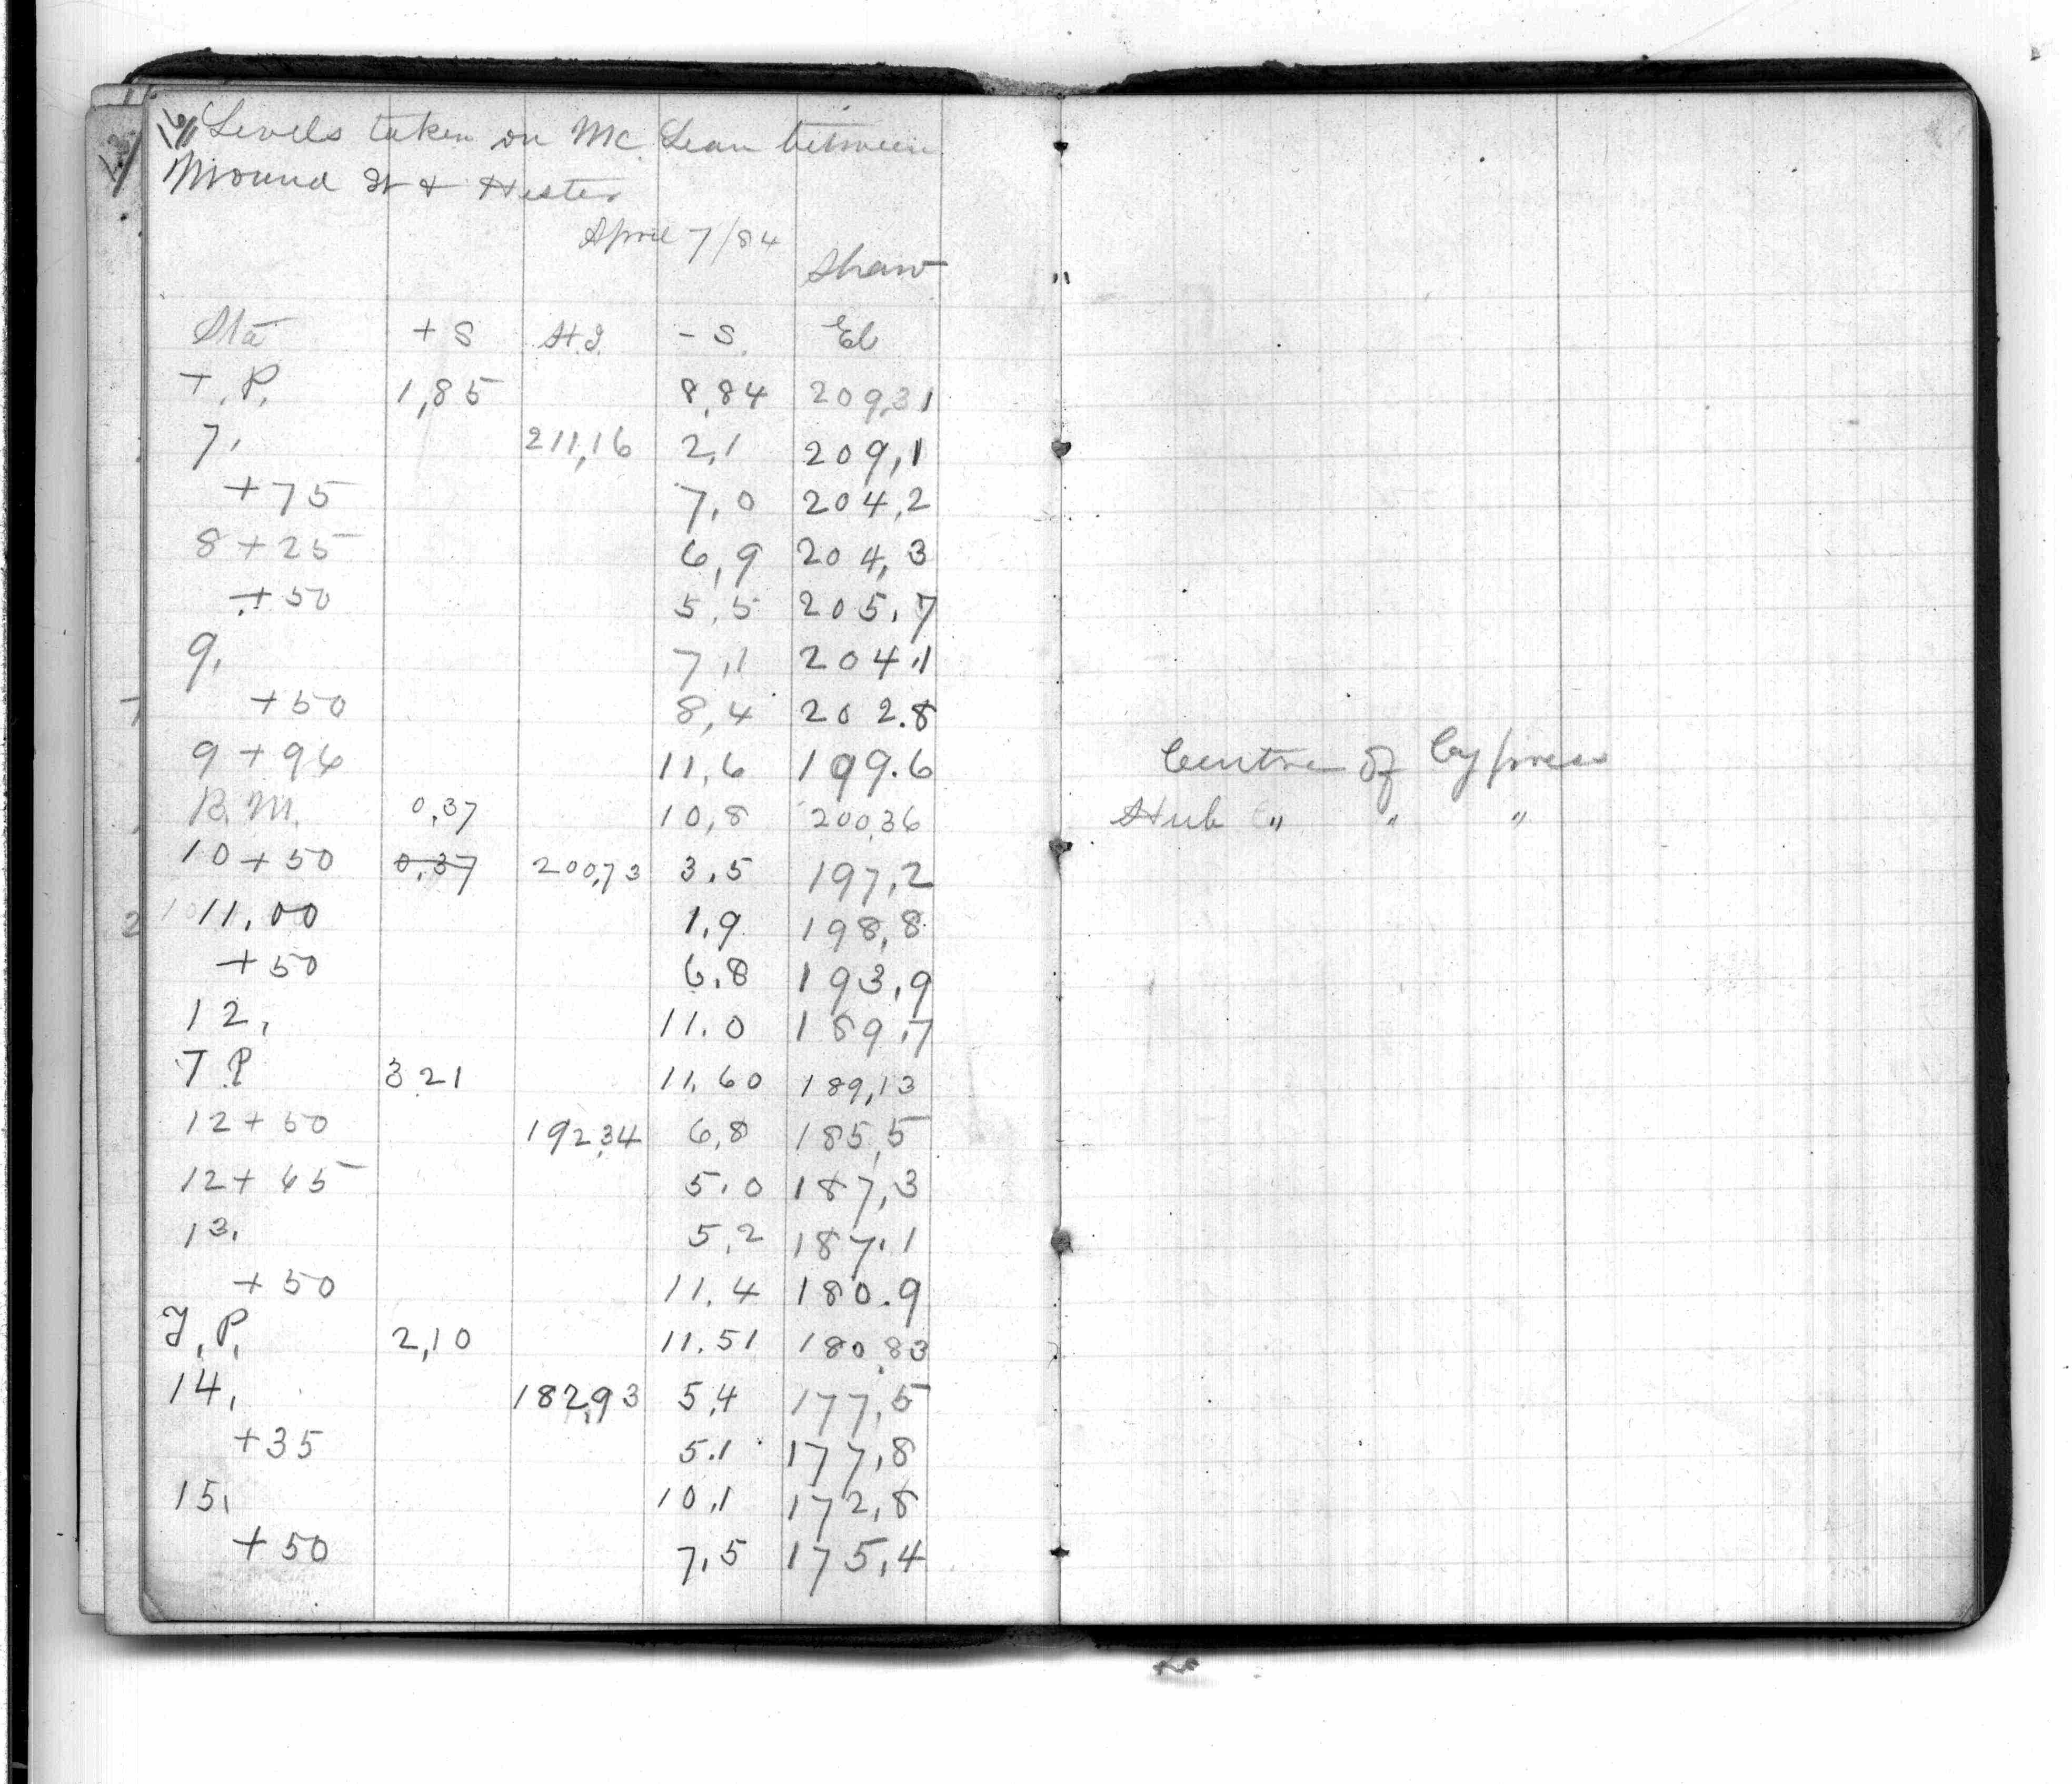 Levels taken on Mc Lean between
Mound St & Hester
April 7/84
Shaw
Sta + S H.I. - S. El
T.P. 1,85 8,84 209,31
7, 211,16 2,1 209,1
+75 7,0 204,2
8+25 6,9 204,3
+50 5,5 205,7
9, 7,1 204,1
+50 8,4 202.8
9+96 11,6 199.6 Centre of Cypress
B.M. 0,37 10,8 200,36 Hub " " "
10+50 0,37 200,73 3.5 197,2
11,00 1,9 198,8
+50 6,8 193,9
12, 11.0 189,7
T.P 3.21 11,60 189,13
12+50 192,34 6,8 185,5
12+65 5,0 187,3
13, 5,2 187,1
+50 11,4 180.9
T.P. 2,10 11.51 180,83
14, 182,93 5,4 177,5
+35 5.1 177,8
15, 10,1 172,8
+50 7,5 175,4